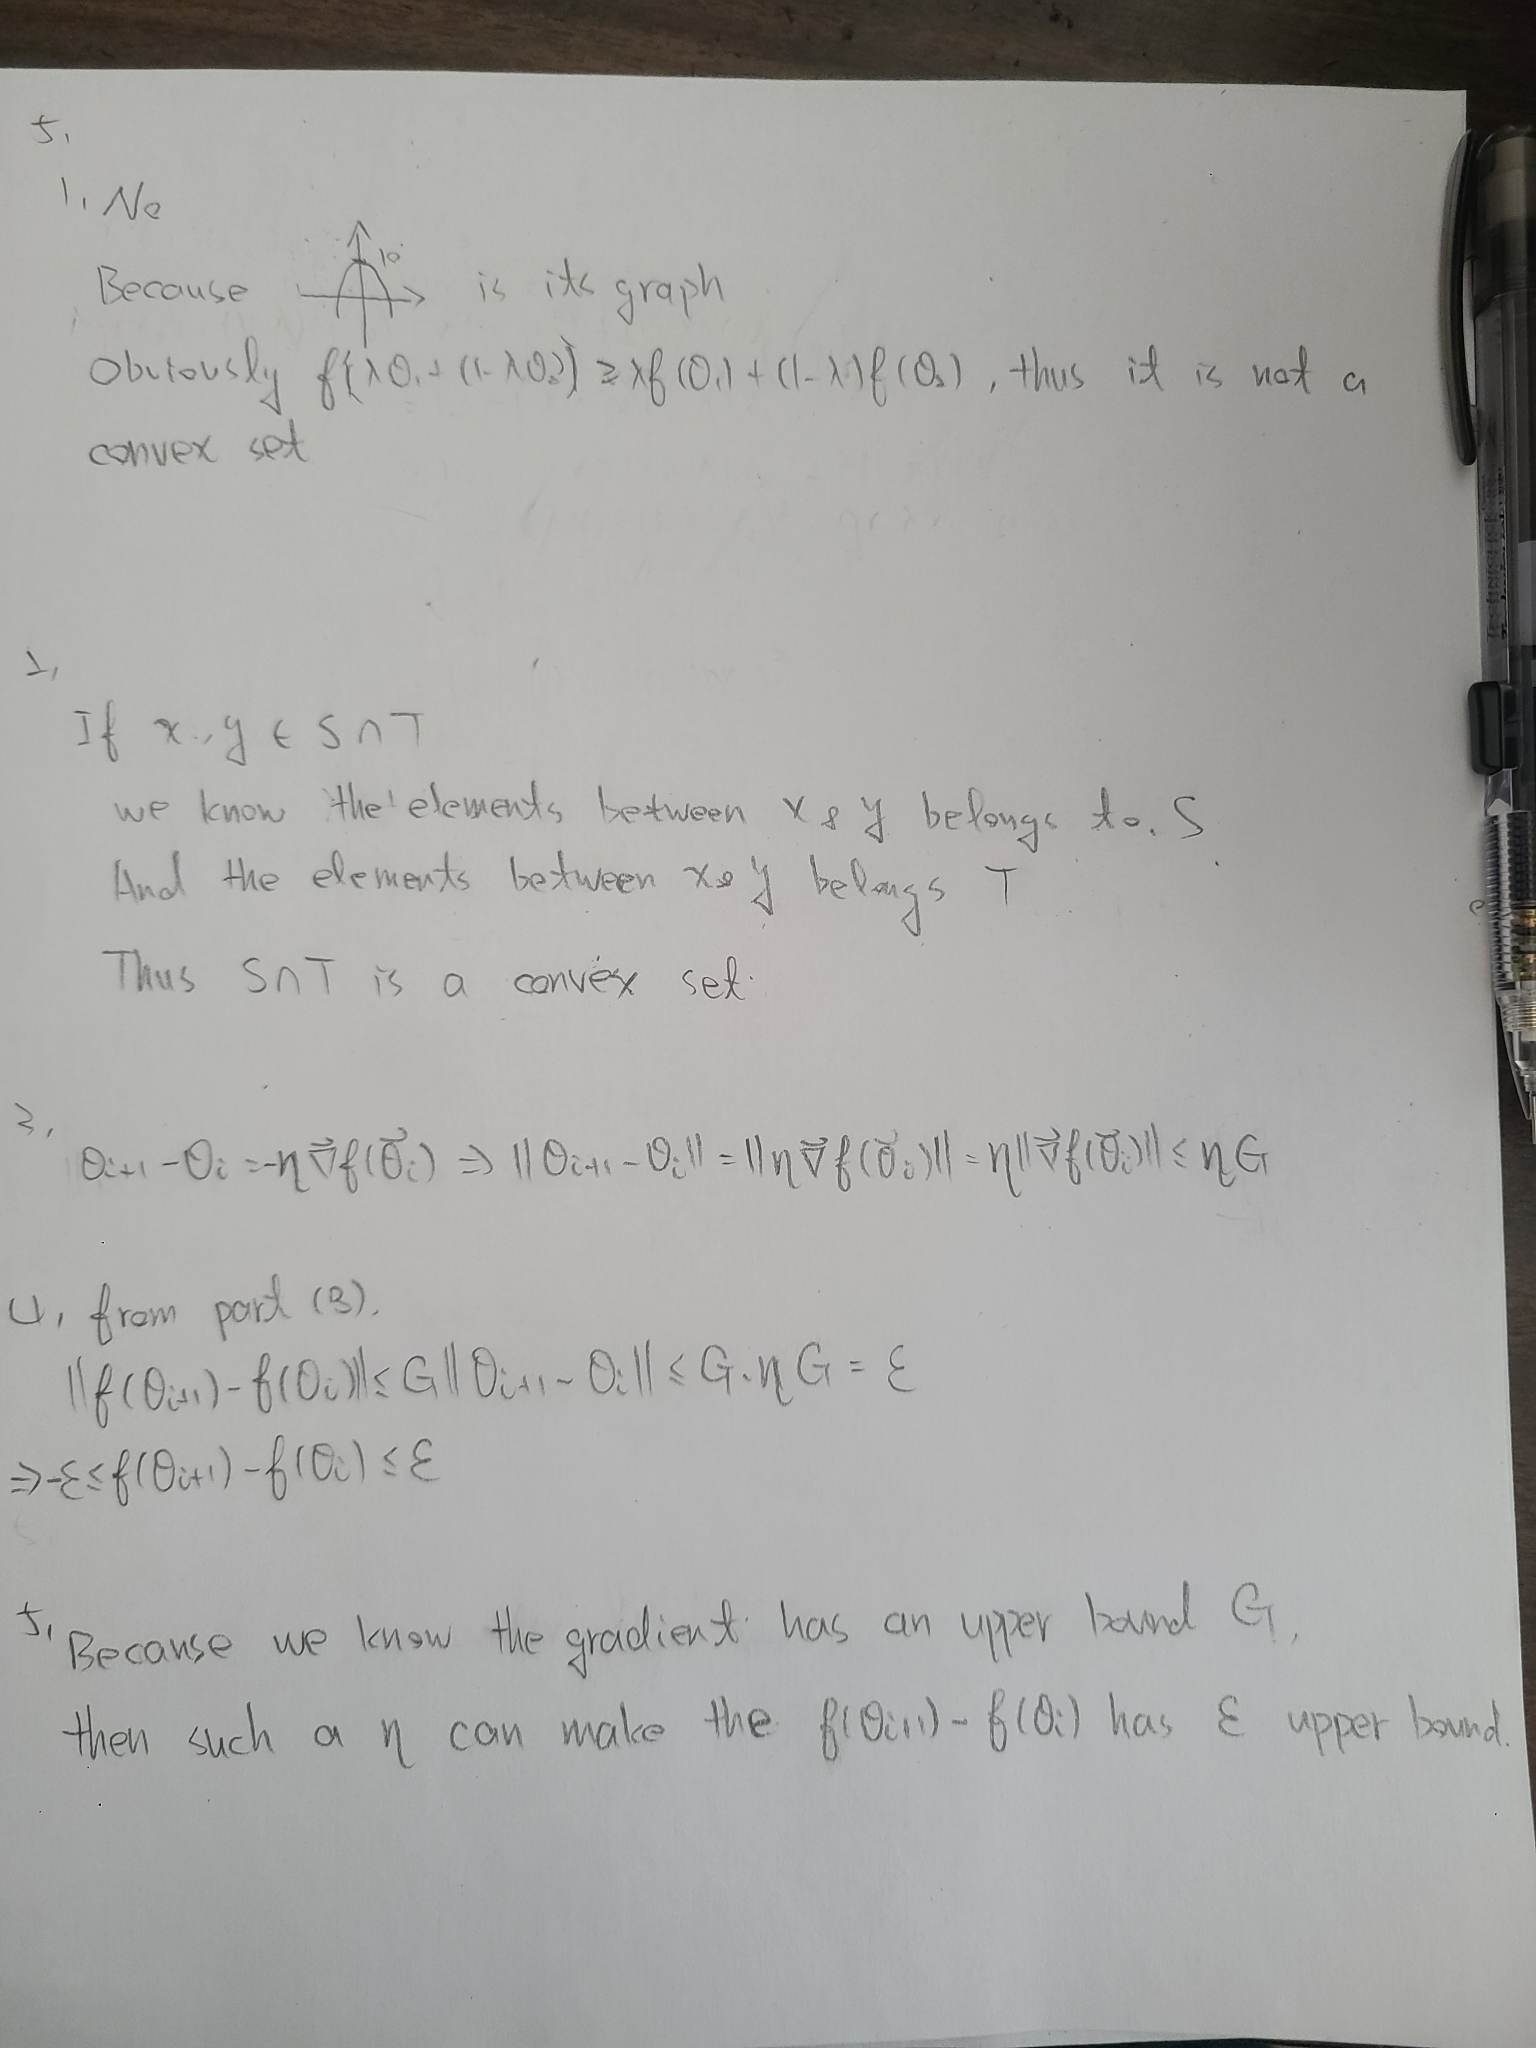 5.
1. No
Because 10 is its graph
Obviously f[λθ₁+(1-λθ₂)] ≥ λf(θ₁)+(1-λ)f(θ₂), thus it is not a
convex set
If x, y ∈ S∩T
we know the elements between x & y belongs to S
And the elements between x & y belongs T
Thus S∩T is a convex set.
3.
θᵢ₊₁-θᵢ=-η∇⃗f(θ⃗ᵢ) ⇒ ||θᵢ₊₁-θᵢ||=||η∇⃗f(θ⃗ᵢ)||=η||∇⃗f(θ⃗ᵢ)||≤ηG
4. from part (3).
||f(θᵢ₊₁)-f(θᵢ)||≤G||θᵢ₊₁-θᵢ||≤G·ηG=ε
⇒-ε≤f(θᵢ₊₁)-f(θᵢ)≤ε
5. Because we know the gradient has an upper bound G,
then such a η can make the f(θᵢ₊₁)-f(θᵢ) has ε upper bound.